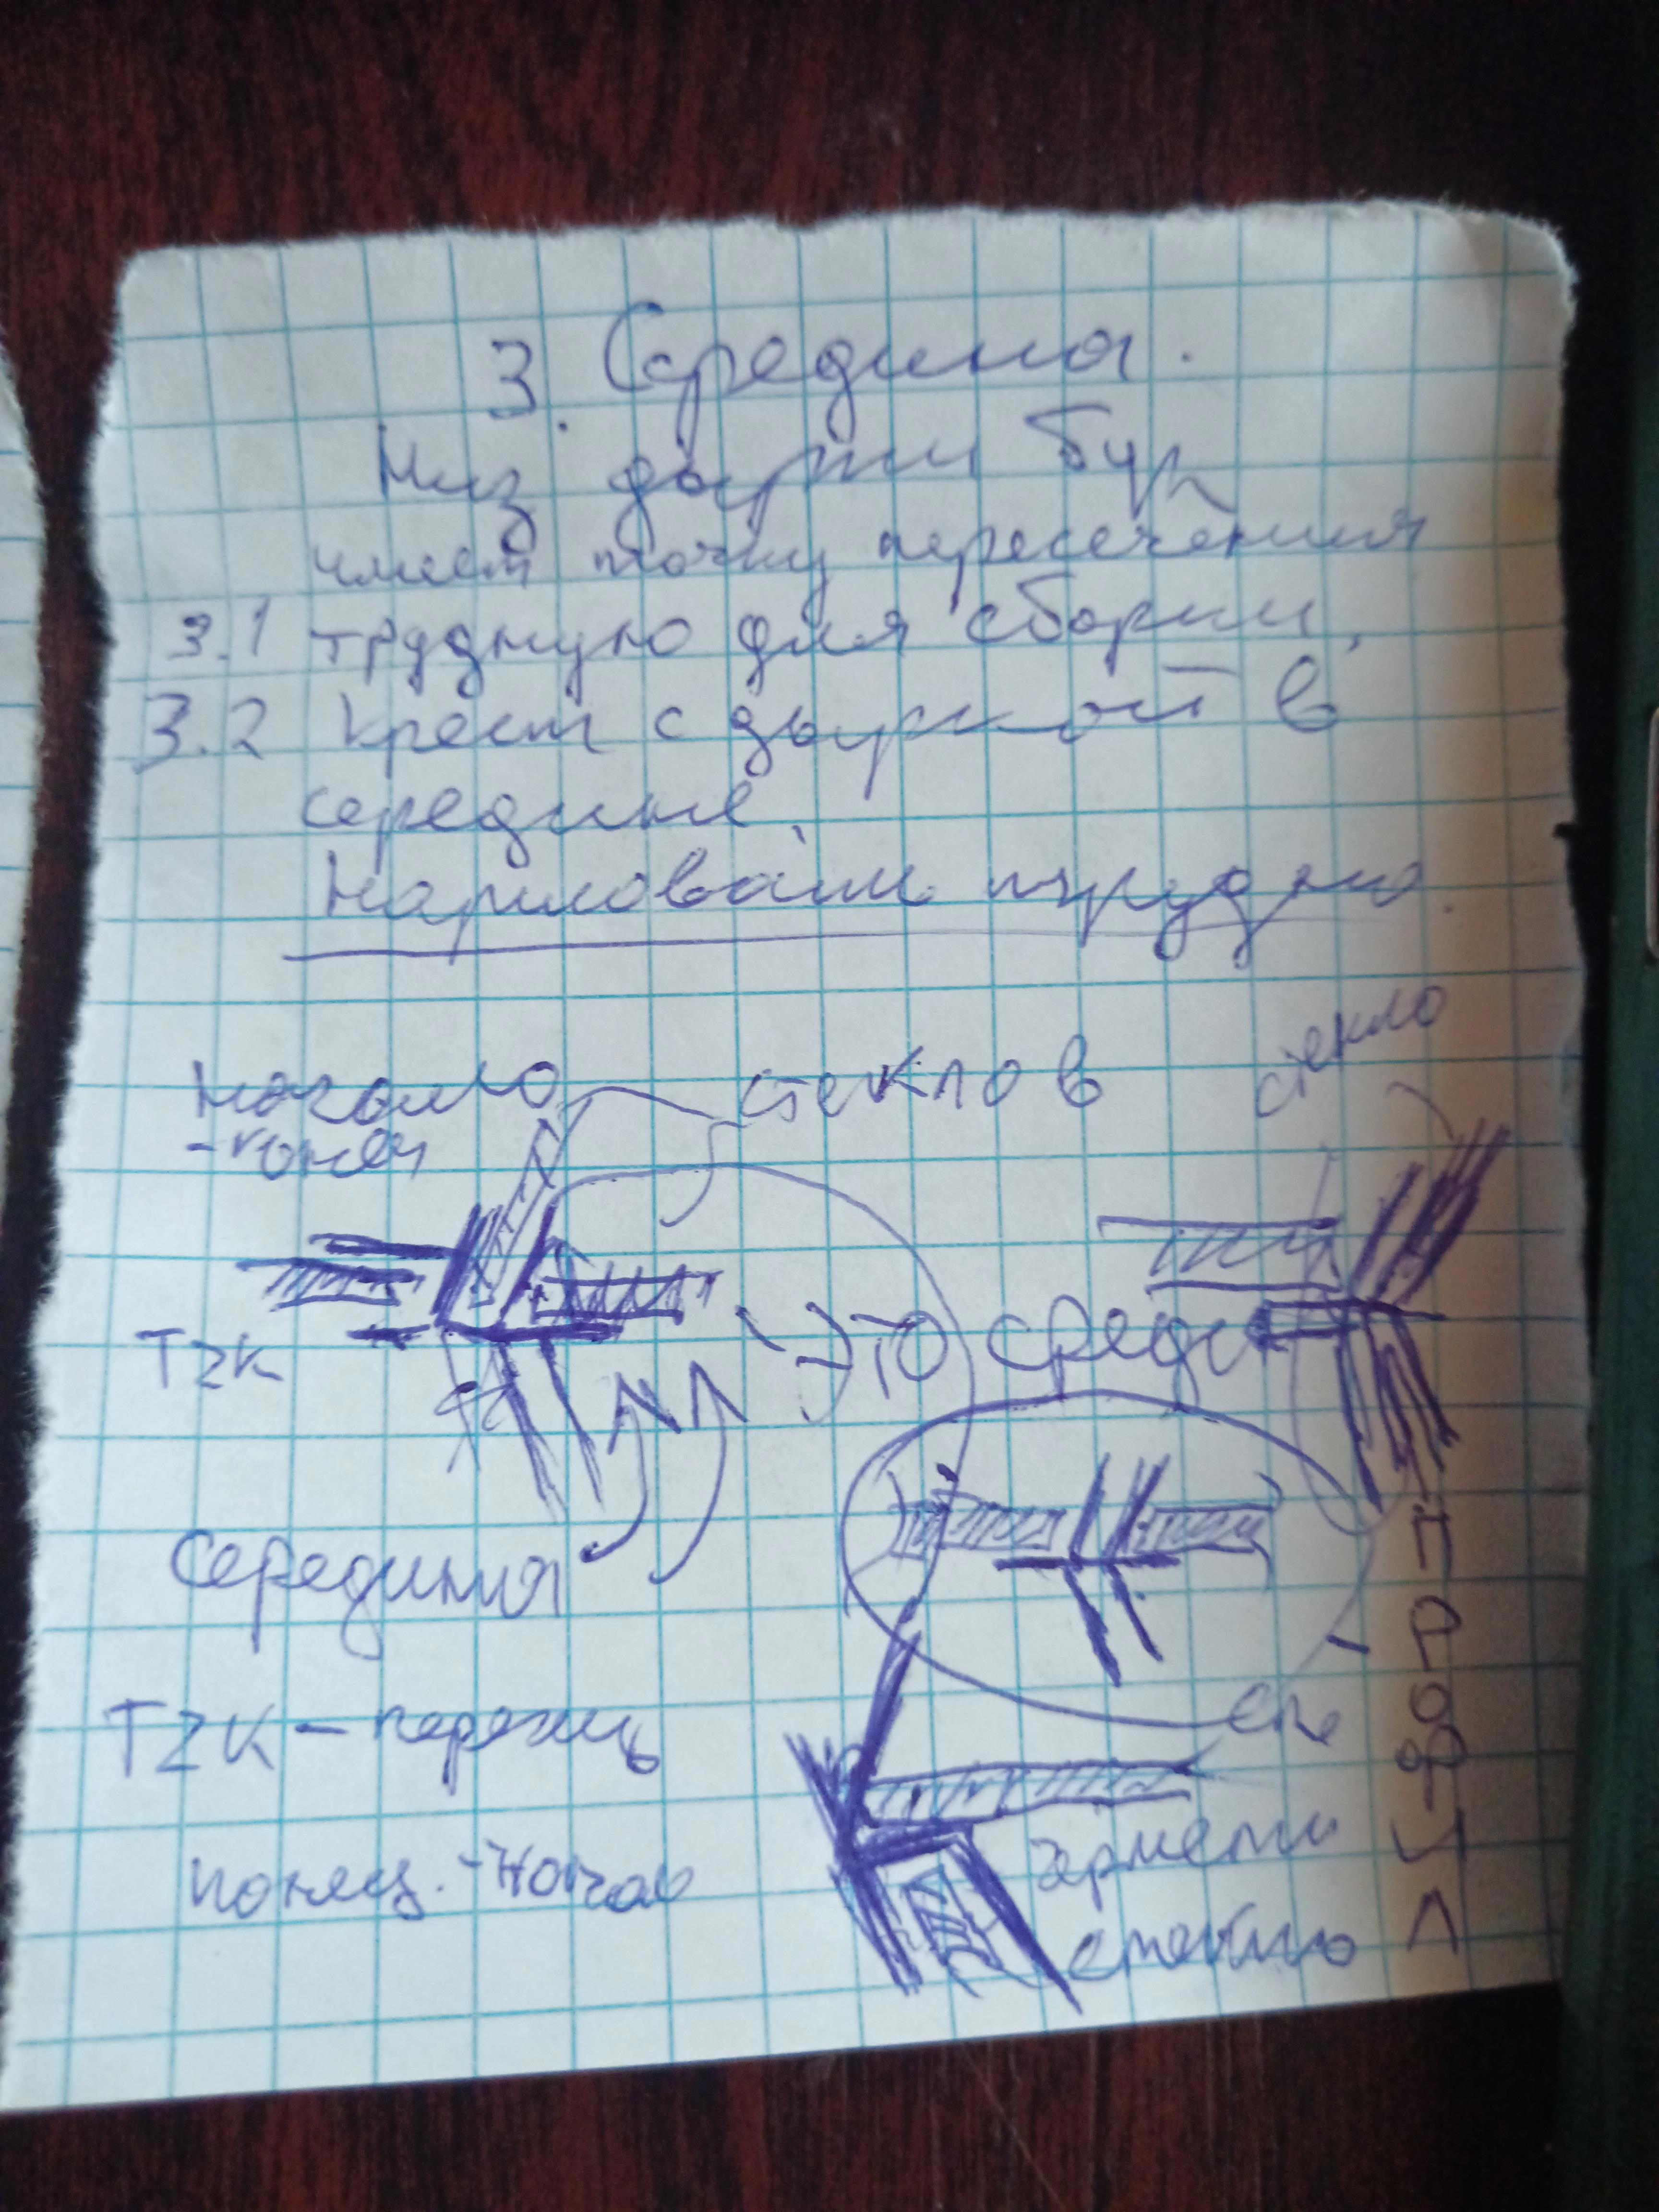 3. Середина.
Низ дырки бук
имеет точку пересечения
3.1 трудную для сборки,
3.2 крест с дыркой в
середине.
Нарисовать трудно.
начало
-конец
стекло в
стекло
TZK
это среди
середина
TZK - перемь
сте
конец. -начао
гермети
стекло
ПРОФИЛ